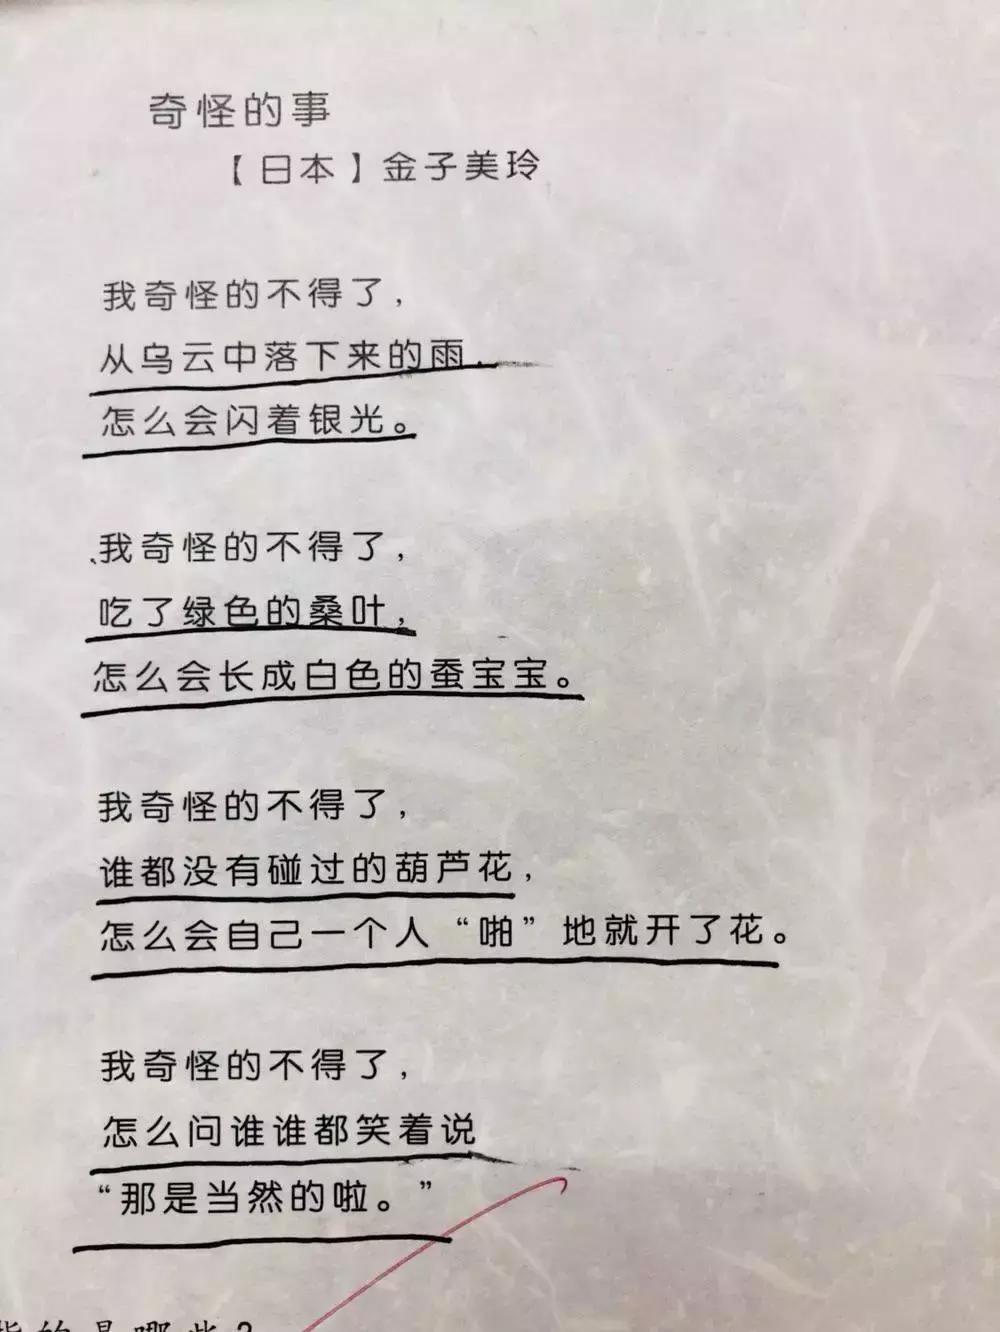 奇怪的事
【日本】金子美玲
我奇怪的不得了，
从乌云中落下来的雨，
怎么会闪着银光。
我奇怪的不得了，
吃了绿色的桑叶，
怎么会长成白色的蚕宝宝。
我奇怪的不得了，
谁都没有碰过的葫芦花，
怎么会自己一个人“啪”地就开了花。
我奇怪的不得了，
怎么问谁谁都笑着说
“那是当然的啦。”
的是哪些？